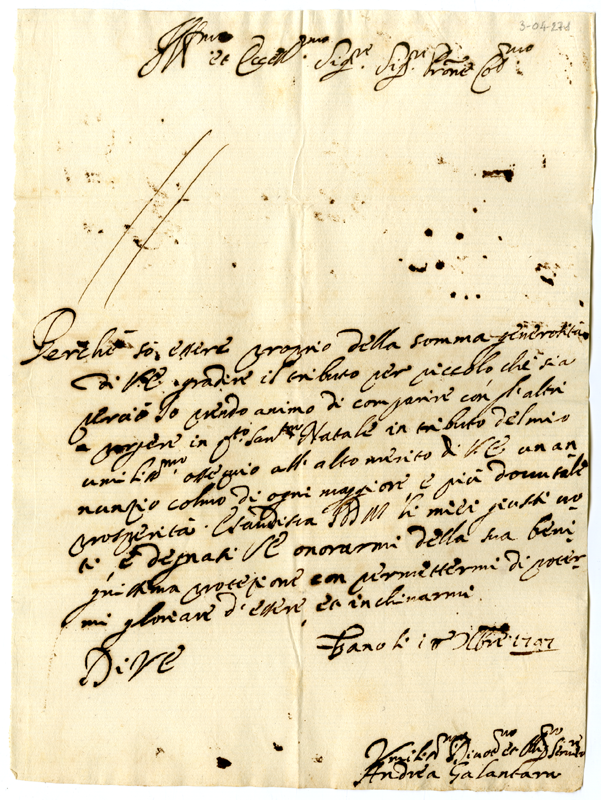 3-04-278
Ill.mo et Eccell.mo Sig.re Sig.r Prone Col.mo
Perche so essere proprio della somma generosità
di V.E. gradire il tributo per piccolo che sia
perciò Io prendo animo di comparire con gli altri
a porgere in q.to San.mo Natale in tributo del mio
umiliss.mo ossequio all'alto merito di V.E. un an
nunzio colmo di ogni maggiore e più dovutale
prosperità. Esaudisca Iddio le mie giuste vo
ti e degnasi V.E. onorarmi della sua beni
gnissima protezione con permettermi di poter
mi gloriare d'essere, et inchinarmi.
Fano li Xbre
Di V.E.
Umiliss.mo Divot.mo et Obb.mo Servit.re
Andrea Galantara